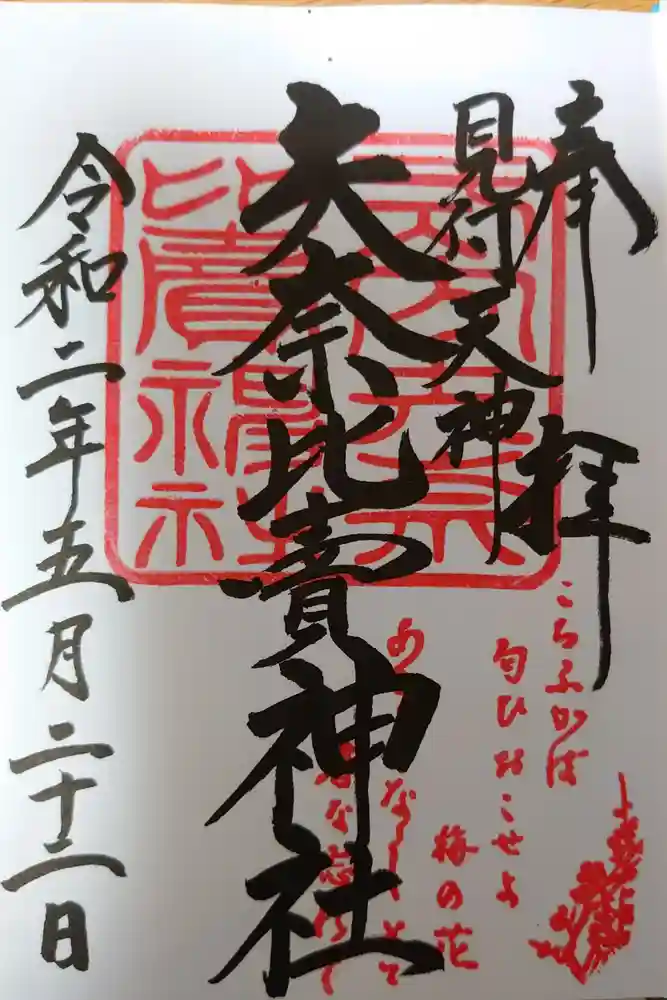 奉拝
見付天神
矢奈比賣神社
令和二年五月二十二日
こちふかば
匂ひおこせよ
梅の花
なしとて
な忘れそ